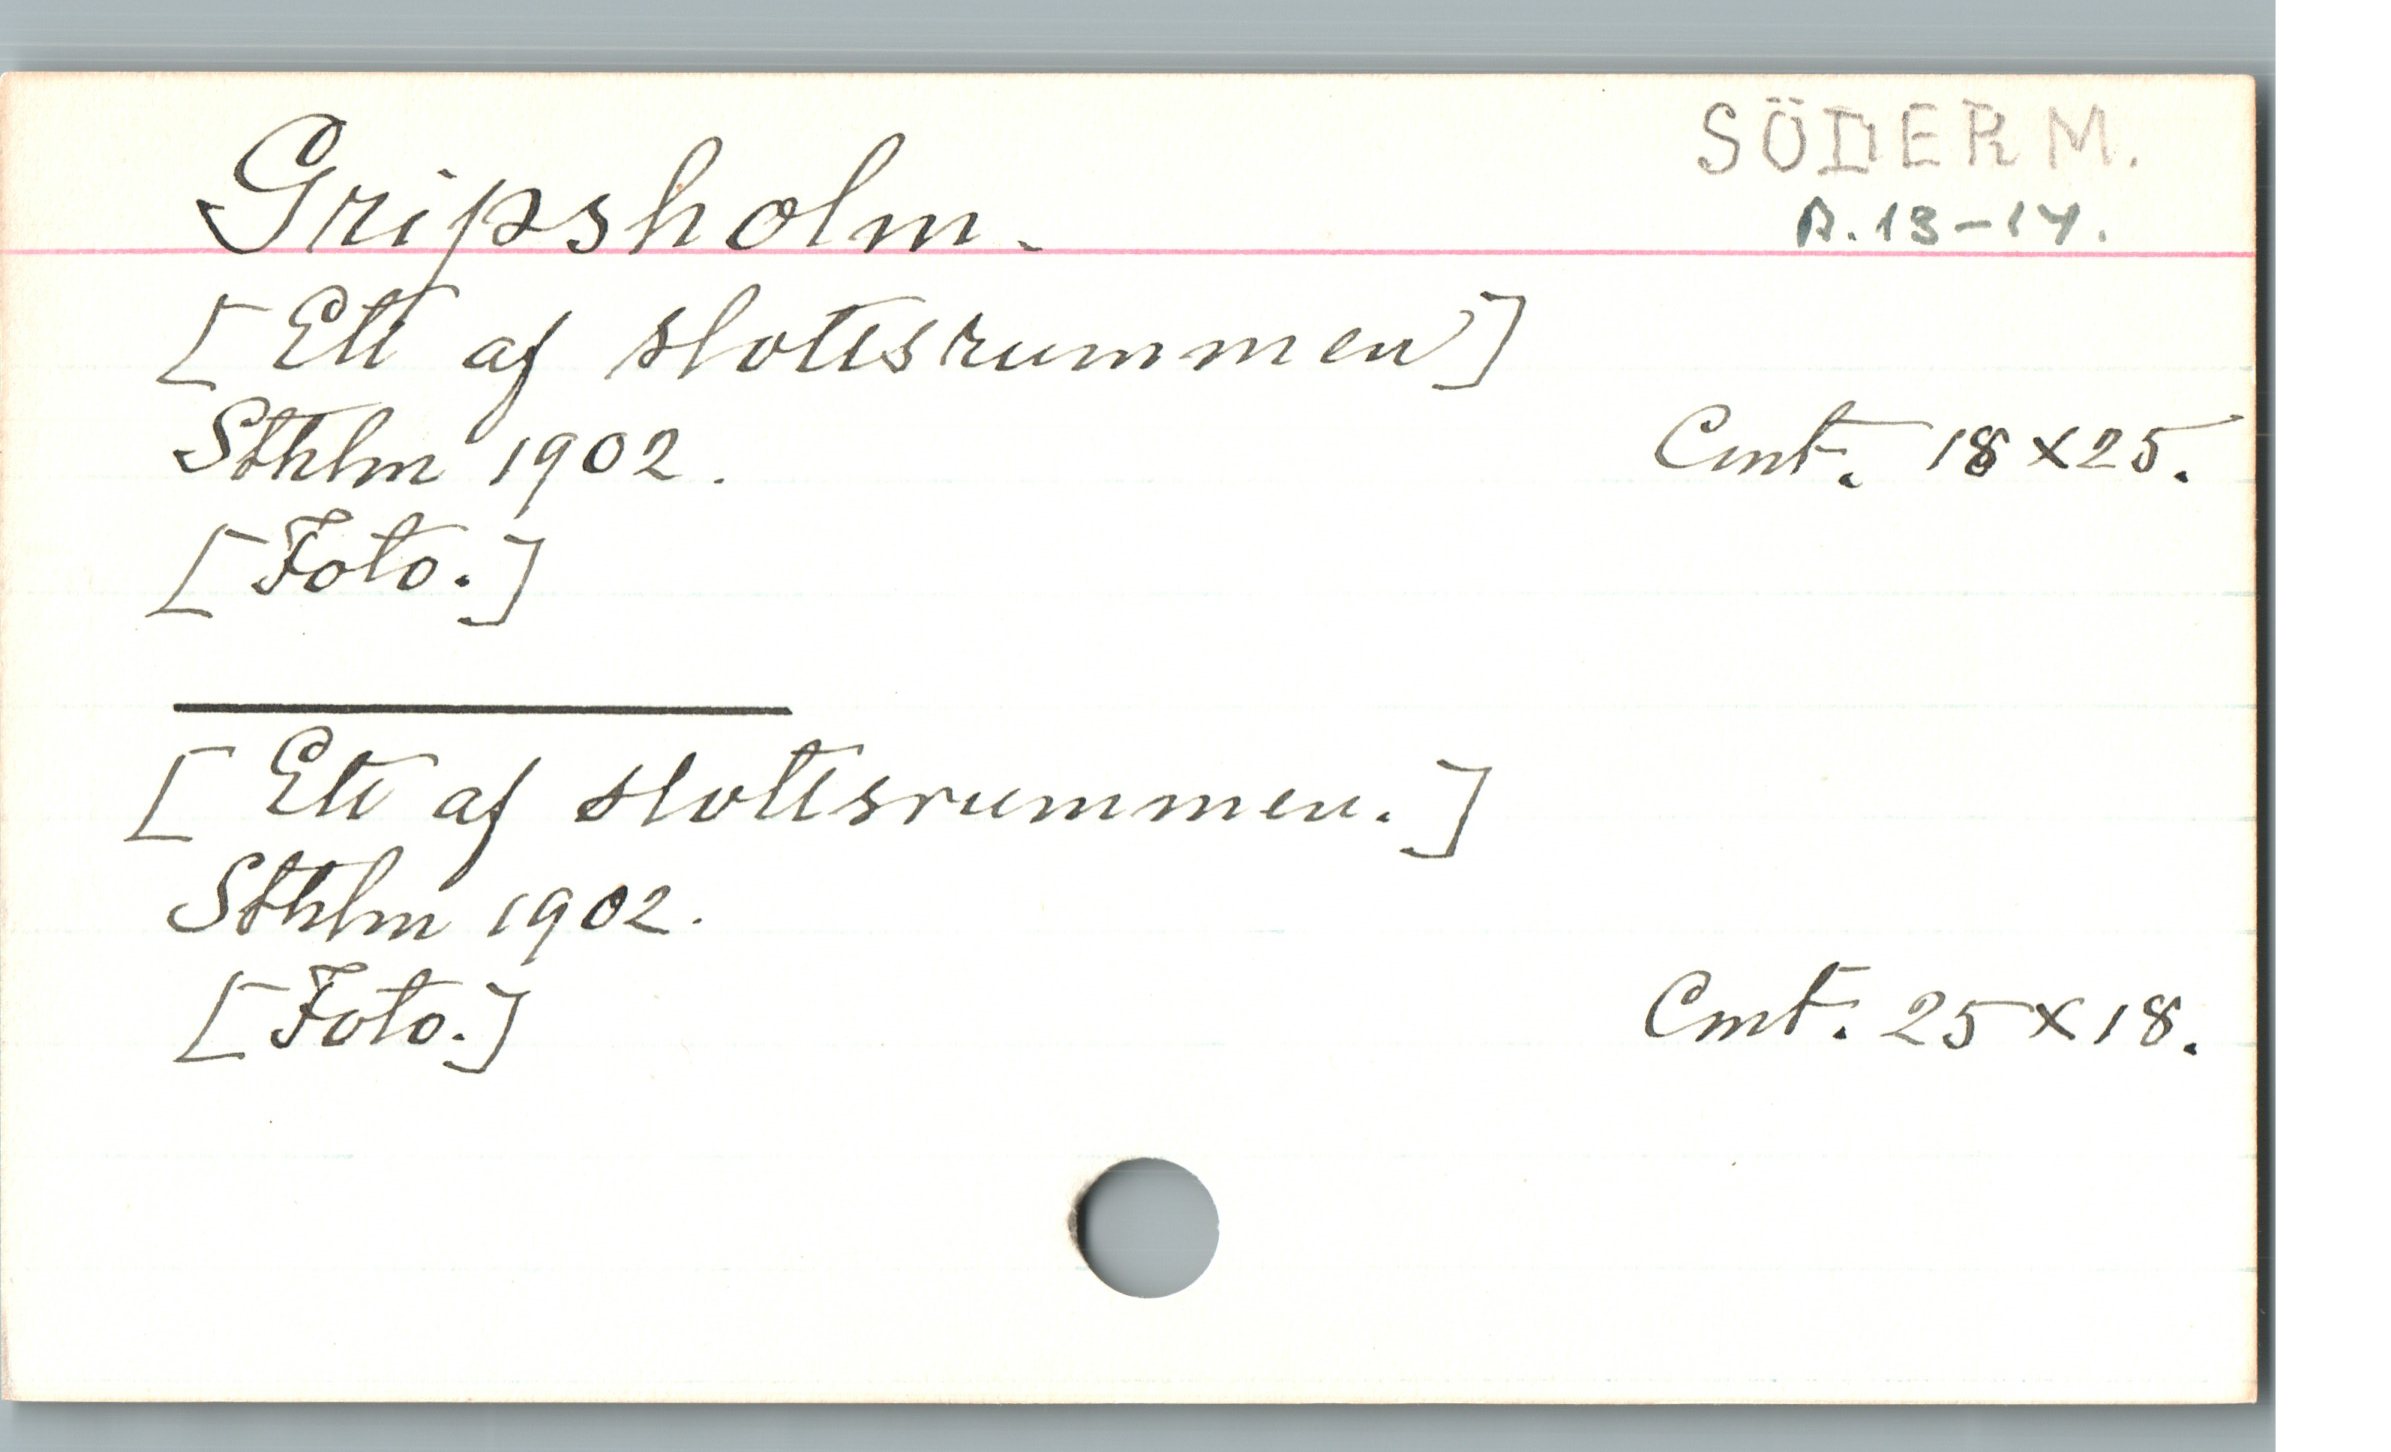 SÖDERM.
Gripsholm.
A. 13-14.
[Ett af slottsrummen]
Sthlm 1902.
Cmt. 18 x 25.
[Foto.]
[Ett af slottsrummen.]
Sthlm 1902.
[Foto.]
Cmt. 25 x 18.